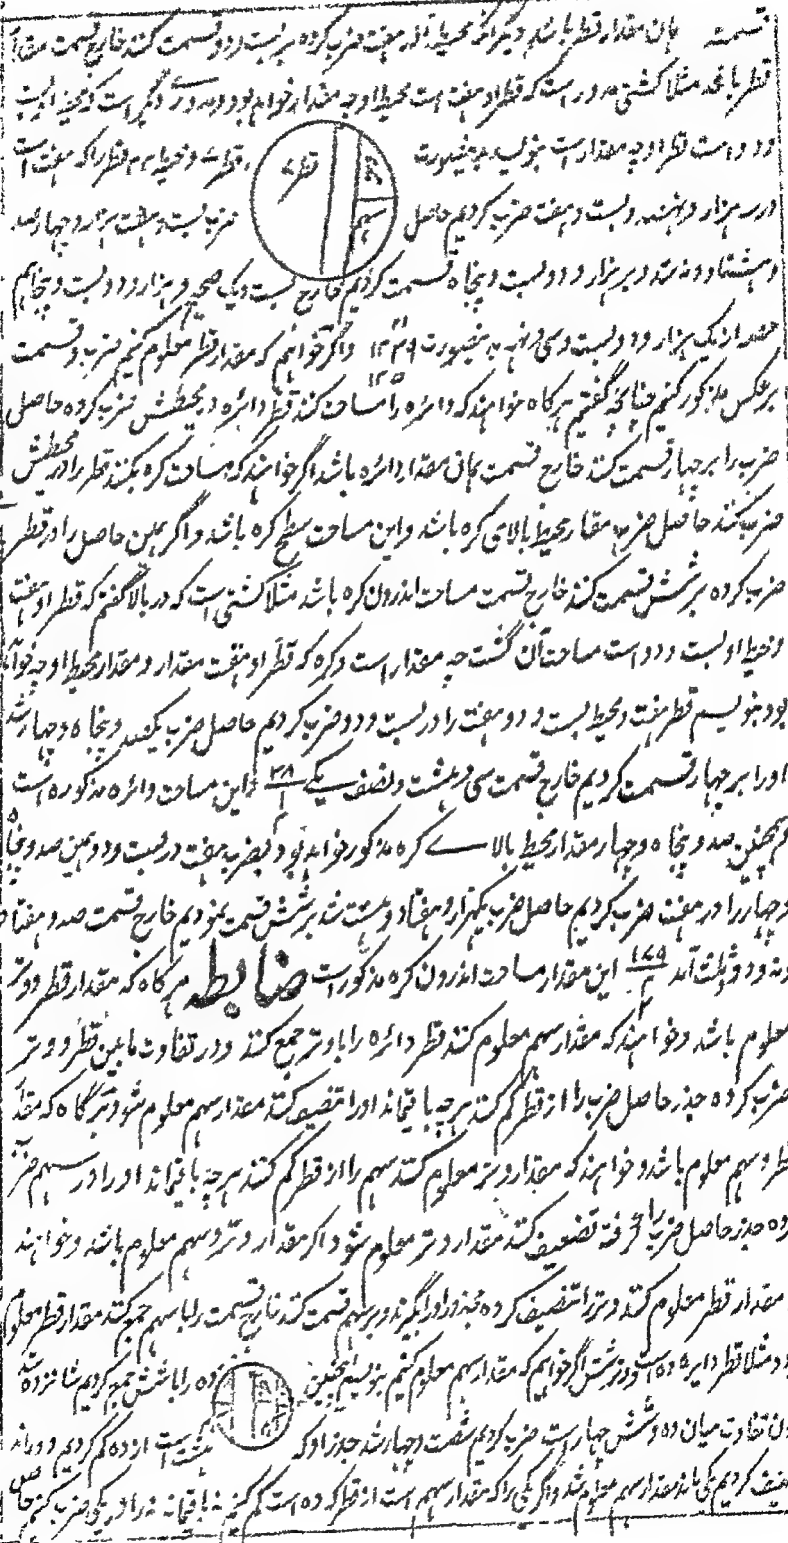 قسمت همان مقدار قطر باشد و دیگر آنکه محیط را در هفت ضرب کرده بر بیست و دو قسمت کنند خارج قسمت مقدار
قطر باشد مثلا کشتی مدور است که قطر او هفت است محیط او چه مقدار خواهد بود و مدورے دیگر است که محیط او بیست
و دو است قطر او چه مقدار است بنویسد بدینصورت قطر ۷ و محیط ۲۲ قطر را که هفت است
در سه هزار و نهصد و بیست و هفت ضرب کردیم حاصل ضرب بیست و هفت هزار و چهار صد
و هشتاد و نه شد و بر هزار و دویست و پنجاه قسمت کردیم خارج بیست و یک صحیح و هزار و دویست و پنجاهم
حصه از یک هزار و دویست و سی و نهه بدینصورت ۲۱ ۱۲۳۹ ۱۲۵۰ و اگر خواهیم که مقدار قطر معلوم کنیم ضرب و قسمت
برعکس مذکور کنیم چنانچه گفتیم هرگاه خواهند که دائره را مساحت کنند قطر دائره در محیطش ضرب کرده حاصل
ضرب را بر چهار قسمت کنند خارج قسمت همان مقدار دائره باشد اگر خواهند که مساحت کره بکنند قطر را در محیطش
ضرب کنند حاصل ضرب مقدار محیط بالای کره باشد و این مساحت سطح کره باشد و اگر همین حاصل را در قطر
ضرب کرده بر شش قسمت کنند خارج قسمت مساحت اندرون کره باشد مثلا کشتی است که در بالا گفتم که قطر او هفت
و محیط او بیست و دو است مساحت آن گشت چه مقدار است و کره که قطر او هفت مقدار و مقدار محیط او چه خواهد
بود بنویسیم قطر هفت و محیط بیست و دو و هفت را در بیست و دو ضرب کردیم حاصل ضرب یکصد و پنجاه و چهار شد
او را بر چهار قسمت کردیم خارج قسمت سی و هشت و نصف یکے ۳۸ ۱ ۲ این مساحت دائره مذکوره است
و همچنین صد و پنجاه و چهار مقدار محیط بالاے کره مذکور خواهد بود بضرب هفت در بیست و دو و همین صد و پنجاه
و چهار را در هفت ضرب کردیم حاصل ضرب یکهزار و هفتاد و هشت شد بر شش قسمت نمودیم خارج قسمت صد و هفتاد
و نه و دو ثلث آمد ۱۷۹ ۲ ۳ این مقدار مساحت اندرون کره مذکور است ضابطه هرگاه که مقدار قطر و وتر
معلوم باشد و خواهند که مقدار سهم معلوم کنند قطر دائره را با وتر جمع کنند و در تفاوت مابین قطر و وتر
ضرب کرده جذر حاصل ضرب را از قطر کم کنند هر چه باقیماند او را تنصیف کنند مقدار سهم معلوم شود و هرگاه که مقدار
قطر و سهم معلوم باشد و خواهند که مقدار وتر معلوم کنند سهم را از قطر کم کنند هر چه باقیماند او را در سهم ضرب
کرده جذر حاصل ضرب را گرفته تضعیف کنند مقدار وتر معلوم شود و اگر مقدار وتر و سهم معلوم باشد و خواهند
که مقدار قطر معلوم کنند وتر را تنصیف کرده مجذور او را بگیرند و بر سهم قسمت کنند خارج قسمت را با سهم جمع کنند مقدار قطر معلوم
شود مثلا قطر دایره ده است و وتر شش اگر خواهیم که مقدار سهم معلوم کنیم بنویسیم همچنین ده را با شش جمع کردیم شانزده شد
چون تفاوت میان ده و شش چهار است ضرب کردیم شصت و چهار شد جذر او که هشت است از ده کم کردیم دو ماند
تنصیف کردیم یکی ماند مقدار سهم معلوم شد و اگر یکی را که مقدار سهم است از قطر که ده است کم کنیم نه باقیماند نه را در یکی ضرب کنیم حاصل